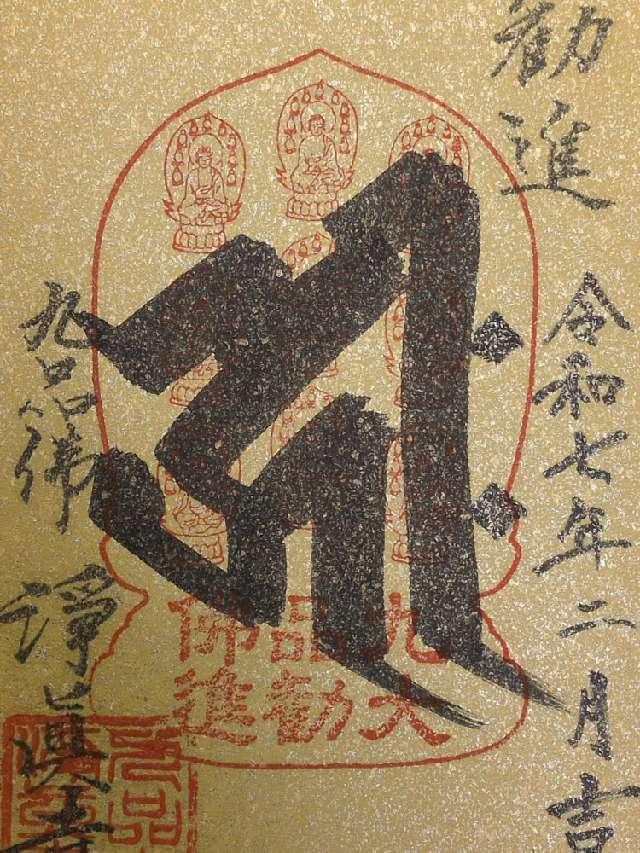 勧進
令和七年二月吉
𑖮𑖿𑖨𑖱𑖾
九品佛
淨眞寺
九品佛
大勧進